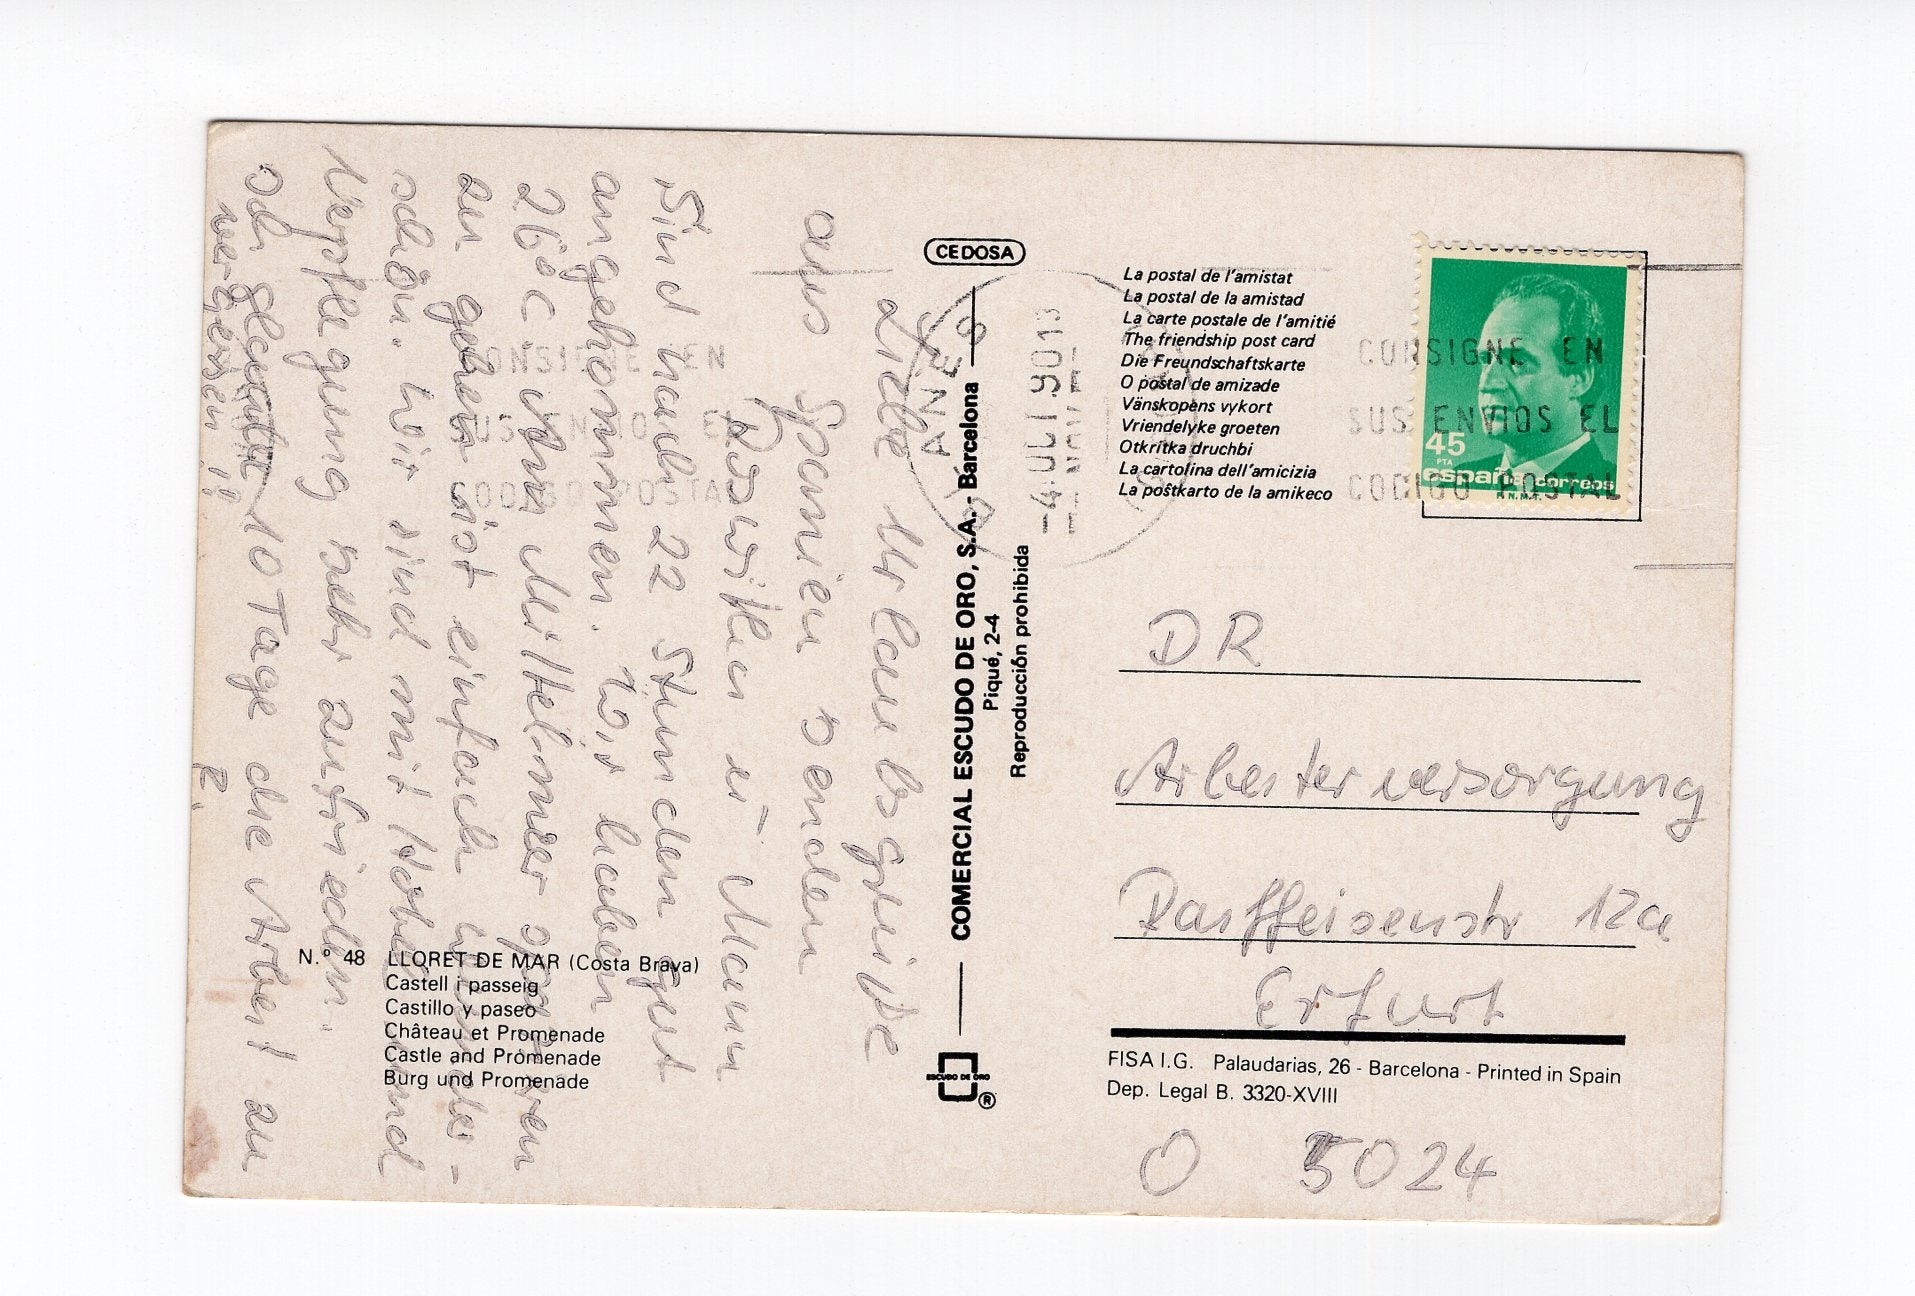 Liebe Urlaubsgrüße
aus Spanien senden
Roswitha u. Mann
Sind nach 22 Stunden gut
angekommen. Wir haben
26°C. Am Mittelmeer spazieren
zu gehen ist einfach wunder-
schön. Wir sind mit Hotel und
Verpflegung sehr zufrieden.
Ich gedenke 10 Tage die Arbeit zu
vergessen!!
R.
CEDOSA
La postal de l'amistat
La postal de la amistad
La carte postale de l'amitié
The friendship post card
Die Freundschaftskarte
O postal de amizade
Vänskopens vykort
Vriendelyke groeten
Otkritka druchbi
La cartolina dell'amicizia
La poŝtkarto de la amikeco
COMERCIAL ESCUDO DE ORO, S.A. - Barcelona
Piqué, 2-4
Reproducción prohibida
ESCUDO DE ORO
®
-4 JUL 90 13
CONSIGNE EN
SUS ENVIOS EL
CODIGO POSTAL
45
PTA
españa correos
F.N.M.T.
DR
Arbeiterversorgung
Raiffeisenstr 12a
Erfurt
O 5024
FISA I.G. Palaudarias, 26 - Barcelona - Printed in Spain
Dep. Legal B. 3320-XVIII
N.º 48 LLORET DE MAR (Costa Brava)
Castell i passeig
Castillo y paseo
Château et Promenade
Castle and Promenade
Burg und Promenade